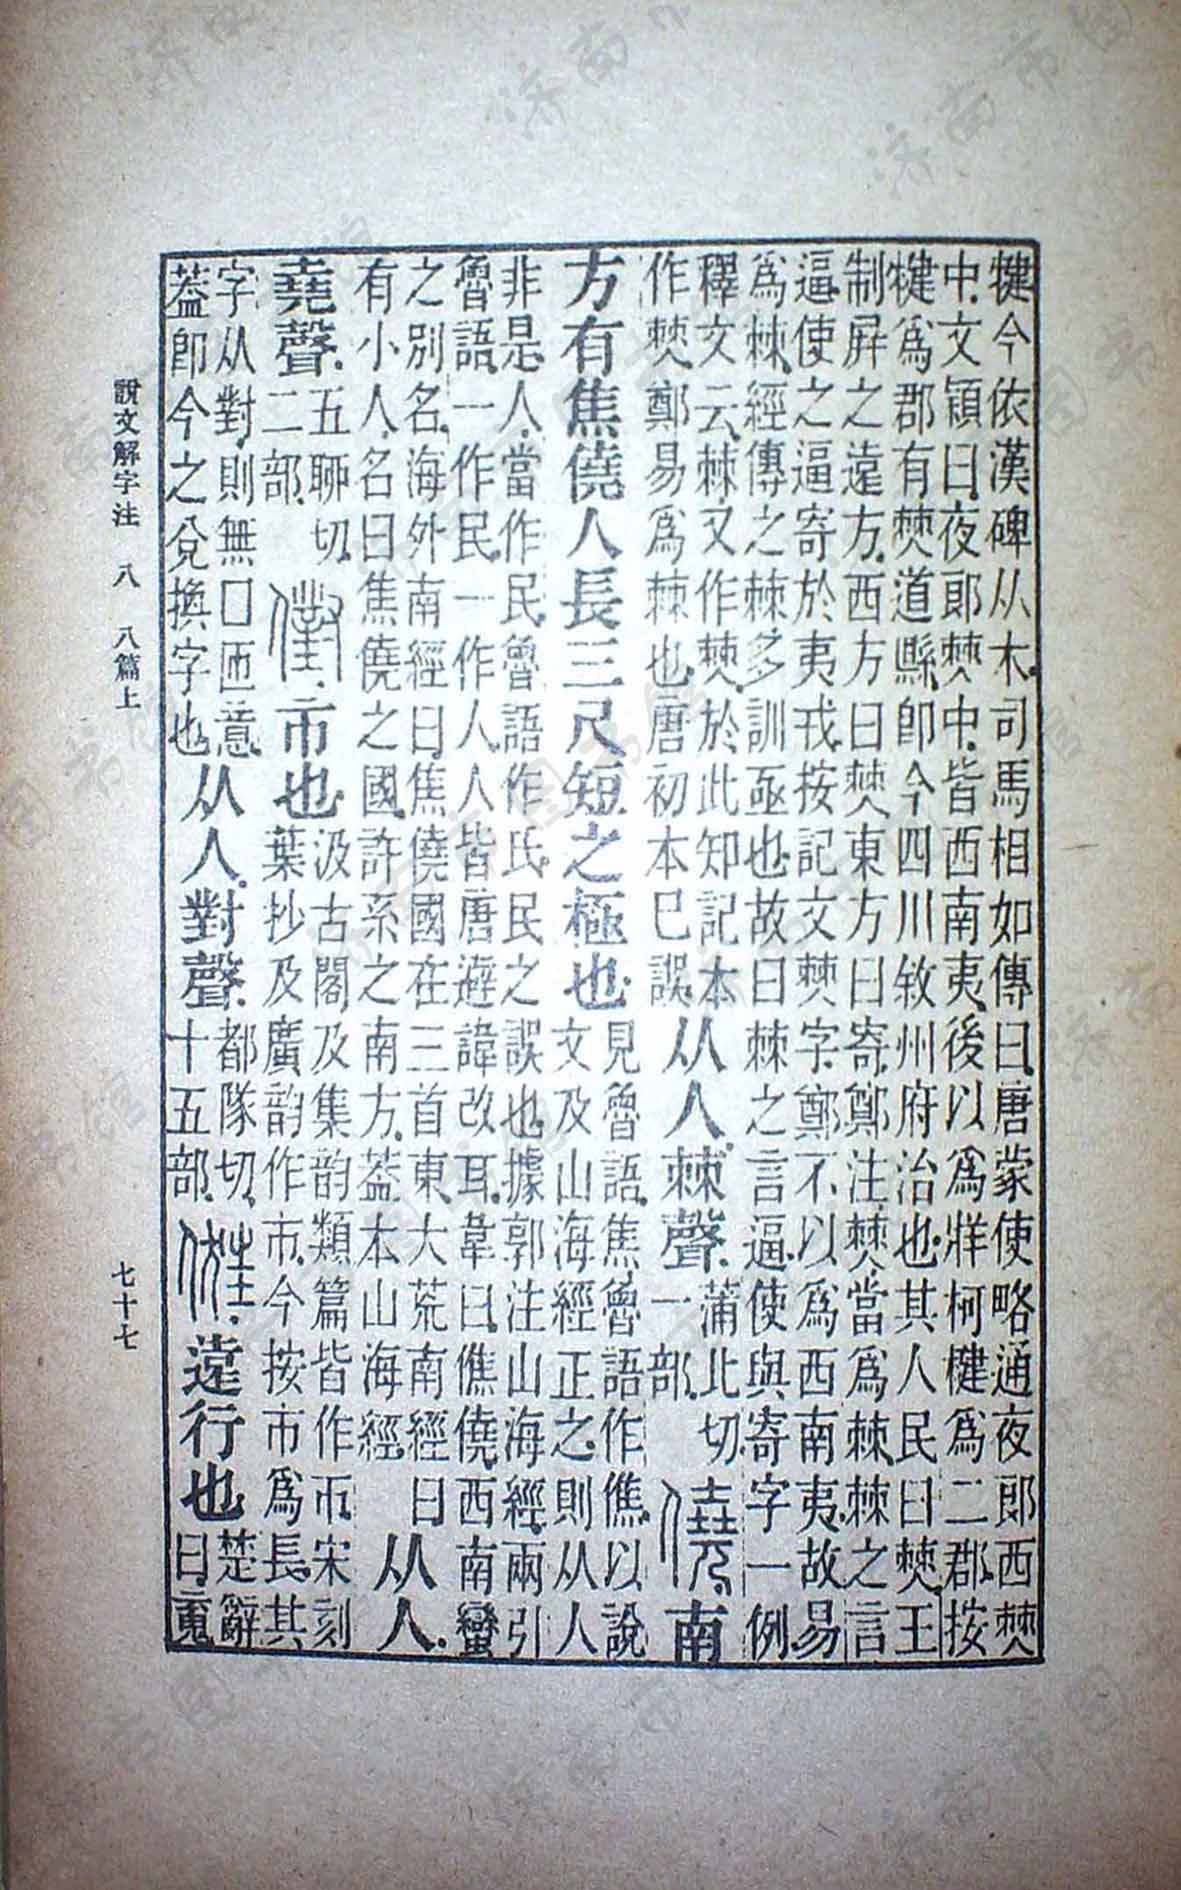 犍今依漢碑从木司馬相如傳曰唐蒙使略通夜郎西僰
中文穎曰夜郎僰中皆西南夷後以爲牂柯犍爲二郡按
犍爲郡有僰道縣卽今四川敘州府治也其人民曰僰王
制屛之遠方西方曰僰東方曰寄鄭注僰當爲棘棘之言
逼使之逼寄於夷戎按記文僰字鄭不以爲西南夷故易
爲棘經傳之棘多訓亟也故曰棘之言逼使與寄字一例
釋文云棘又作僰於此知記本
作僰鄭易爲棘也唐初本巳誤
从人棘聲
蒲北切
一部
僥南
方有焦僥人長三尺短之極也
見魯語焦魯語作僬以說
文及山海經正之則从人
非是人當作民魯語作氏民之誤也據郭注山海經兩引
魯語一作民一作人人皆唐避諱改耳韋曰僬僥西南蠻
之別名海外南經曰焦僥國在三首東大荒南經曰
有小人名曰焦僥之國許系之南方葢本山海經
从人
堯聲
五聊切
二部
市也
汲古閣及集韵類篇皆作帀宋刻
葉抄及廣韵作市今按市爲長其
字从對則無囗匝意
葢卽今之兌換字也
从人對聲
都隊切
十五部
俇遠行也
楚辭
曰䰟
說文解字注 八 八篇上 七十七